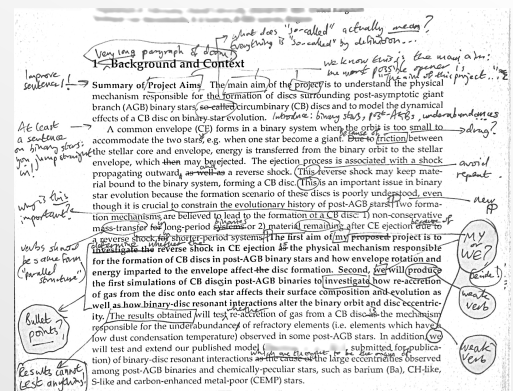 Very long paragraph of doom!
what does "so-called" actually mean?
everything is "so-called" by definition...
we know this is the main aim:
the worst possible opener is
"The aim of this project..."
Improve
sentence!!
1 Background and Context
Summary of Project Aims The main aim of the project is to understand the physical
mechanism responsible for the formation of discs surrounding post-asymptotic giant
branch (AGB) binary stars, so-called circumbinary (CB) discs and to model the dynamical
effects of a CB disc on binary star evolution. Introduce: binary stars, post-AGBs, underabundances
A common envelope (CE) forms in a binary system when the orbit is too small to
accommodate the two stars, e.g. when one star become a giant. Due to friction between
the stellar core and envelope, energy is transferred from the binary orbit to the stellar
envelope, which then may be ejected. The ejection process is associated with a shock
propagating outward, as well as a reverse shock. This reverse shock may keep mate-
rial bound to the binary system, forming a CB disc. This is an important issue in binary
star evolution because the formation scenario of these discs is poorly understood, even
though it is crucial to constrain the evolutionary history of post-AGB stars. Two forma-
tion mechanisms are believed to lead to the formation of a CB disc: 1) non-conservative
mass-transfer for long-period systems or 2) material remaining after CE ejection due to
a reverse shock for shorter-period systems. The first aim of my proposed project is to
investigate the reverse shock in CE ejection as the physical mechanism responsible
for the formation of CB discs in post-AGB binary stars and how envelope rotation and
energy imparted to the envelope affect the disc formation. Second, we will produce
the first simulations of CB discs in post-AGB binaries to investigate how re-accretion
of gas from the disc onto each star affects their surface composition and evolution as
well as how binary-disc resonant interactions alter the binary orbit and disc eccentric-
ity. The results obtained will test re-accretion of gas from a CB disc as the mechanism
responsible for the underabundance of refractory elements (i.e. elements which have
low dust condensation temperature) observed in some post-AGB stars. In addition, we
will test and extend our published model ( , submitted for publica-
tion) of binary-disc resonant interactions as the cause of the large eccentricities observed
among post-AGB binaries and chemically-peculiar stars, such as barium (Ba), CH-like,
S-like and carbon-enhanced metal-poor (CEMP) stars.
At least
a sentence
on binary stars:
you jump straight
in!
why is this
important?
verbs should
be same form
("parallel
structure")
Bullet
points?
Results cannot
test anything!
because of
drag?
avoid
repeat
new
MY
or
WE?
(decide!)
weak
verb
weak
verb